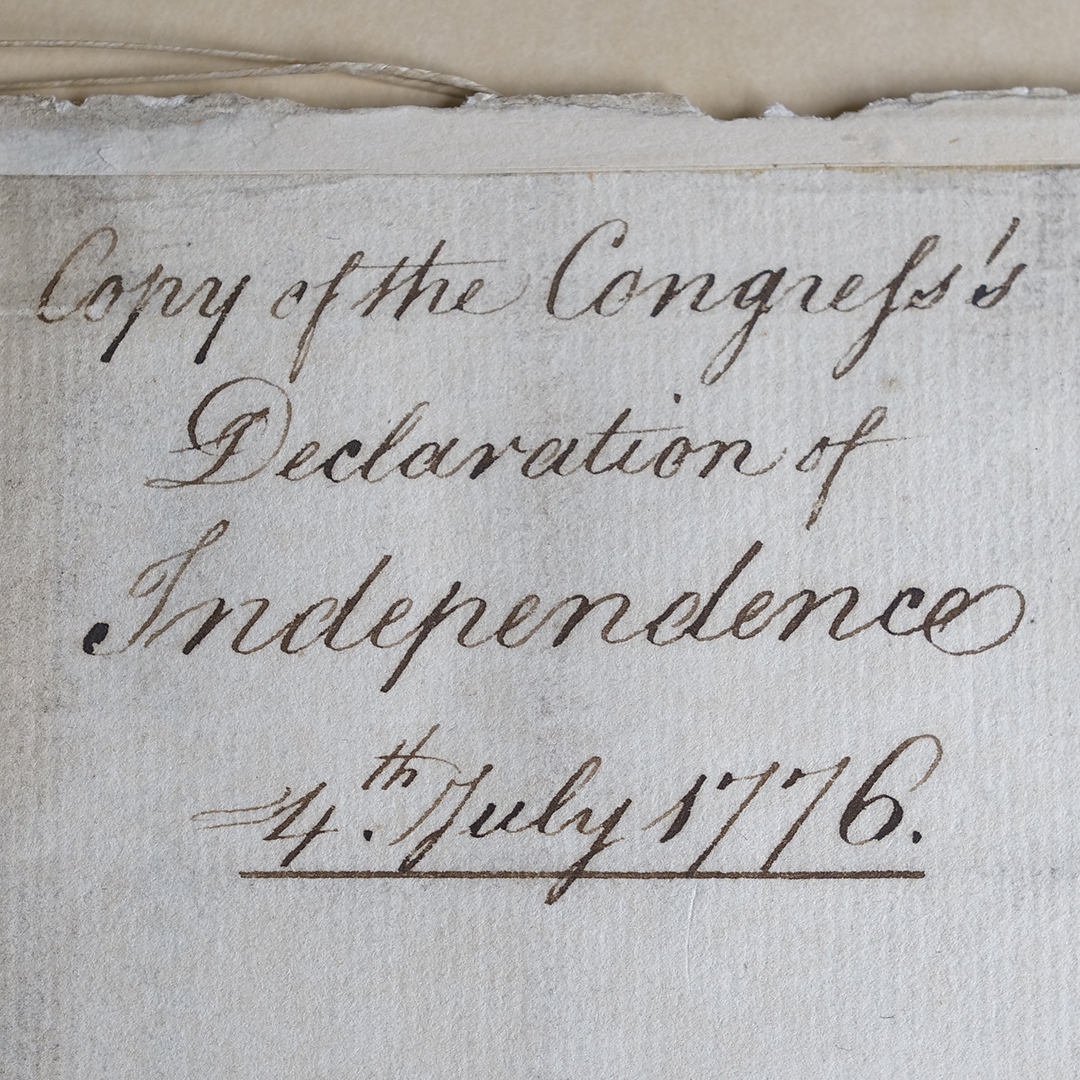 Copy of the Congreſs's
Declaration of
Independence
4.th July 1776.